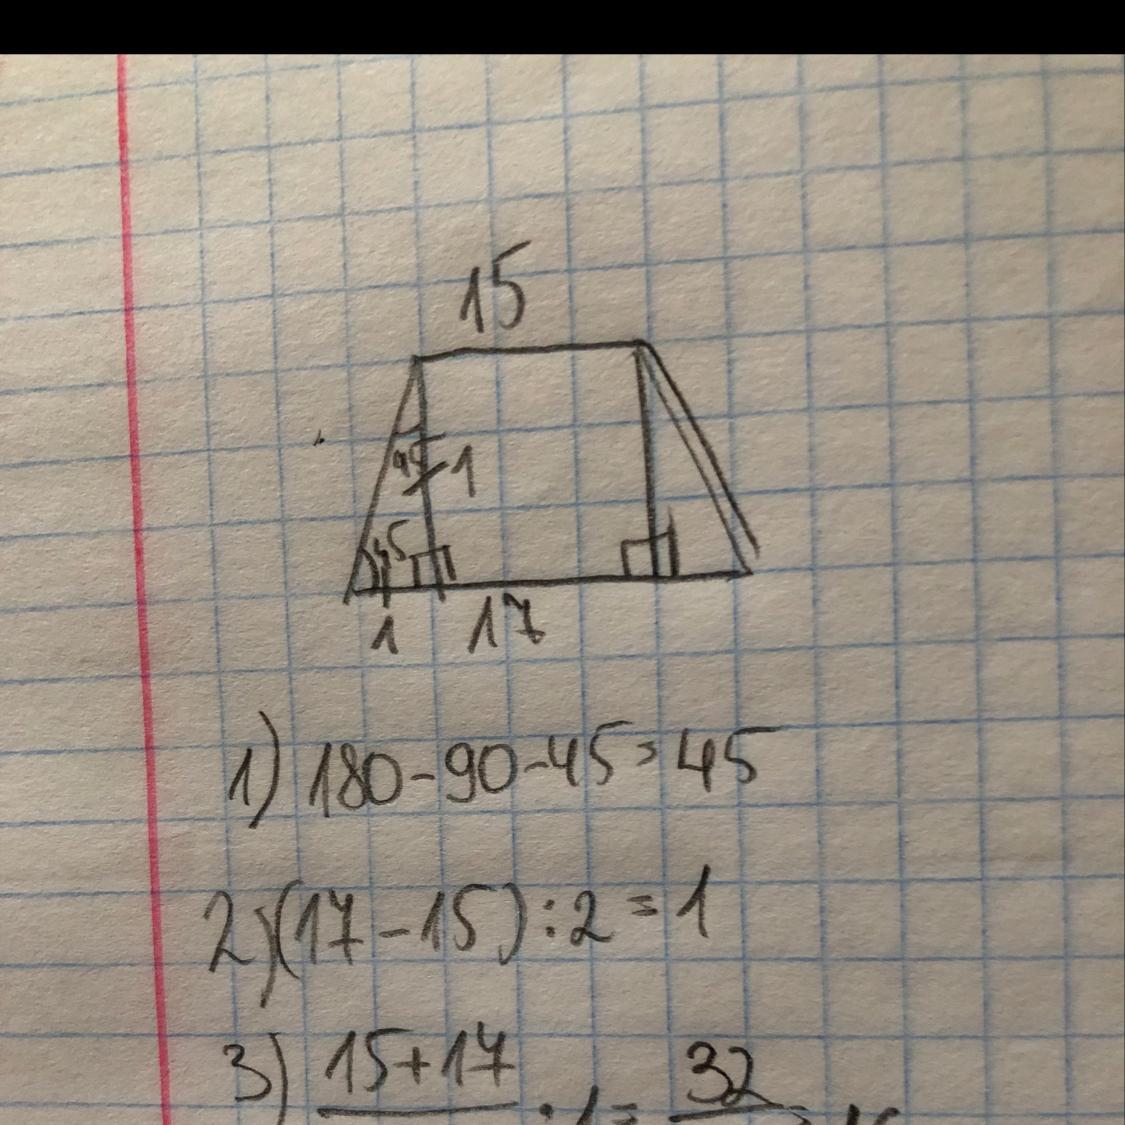 15
45
1
45
1 17
1) 180-90-45=45
2)(17-15):2=1
3) 15+17 32